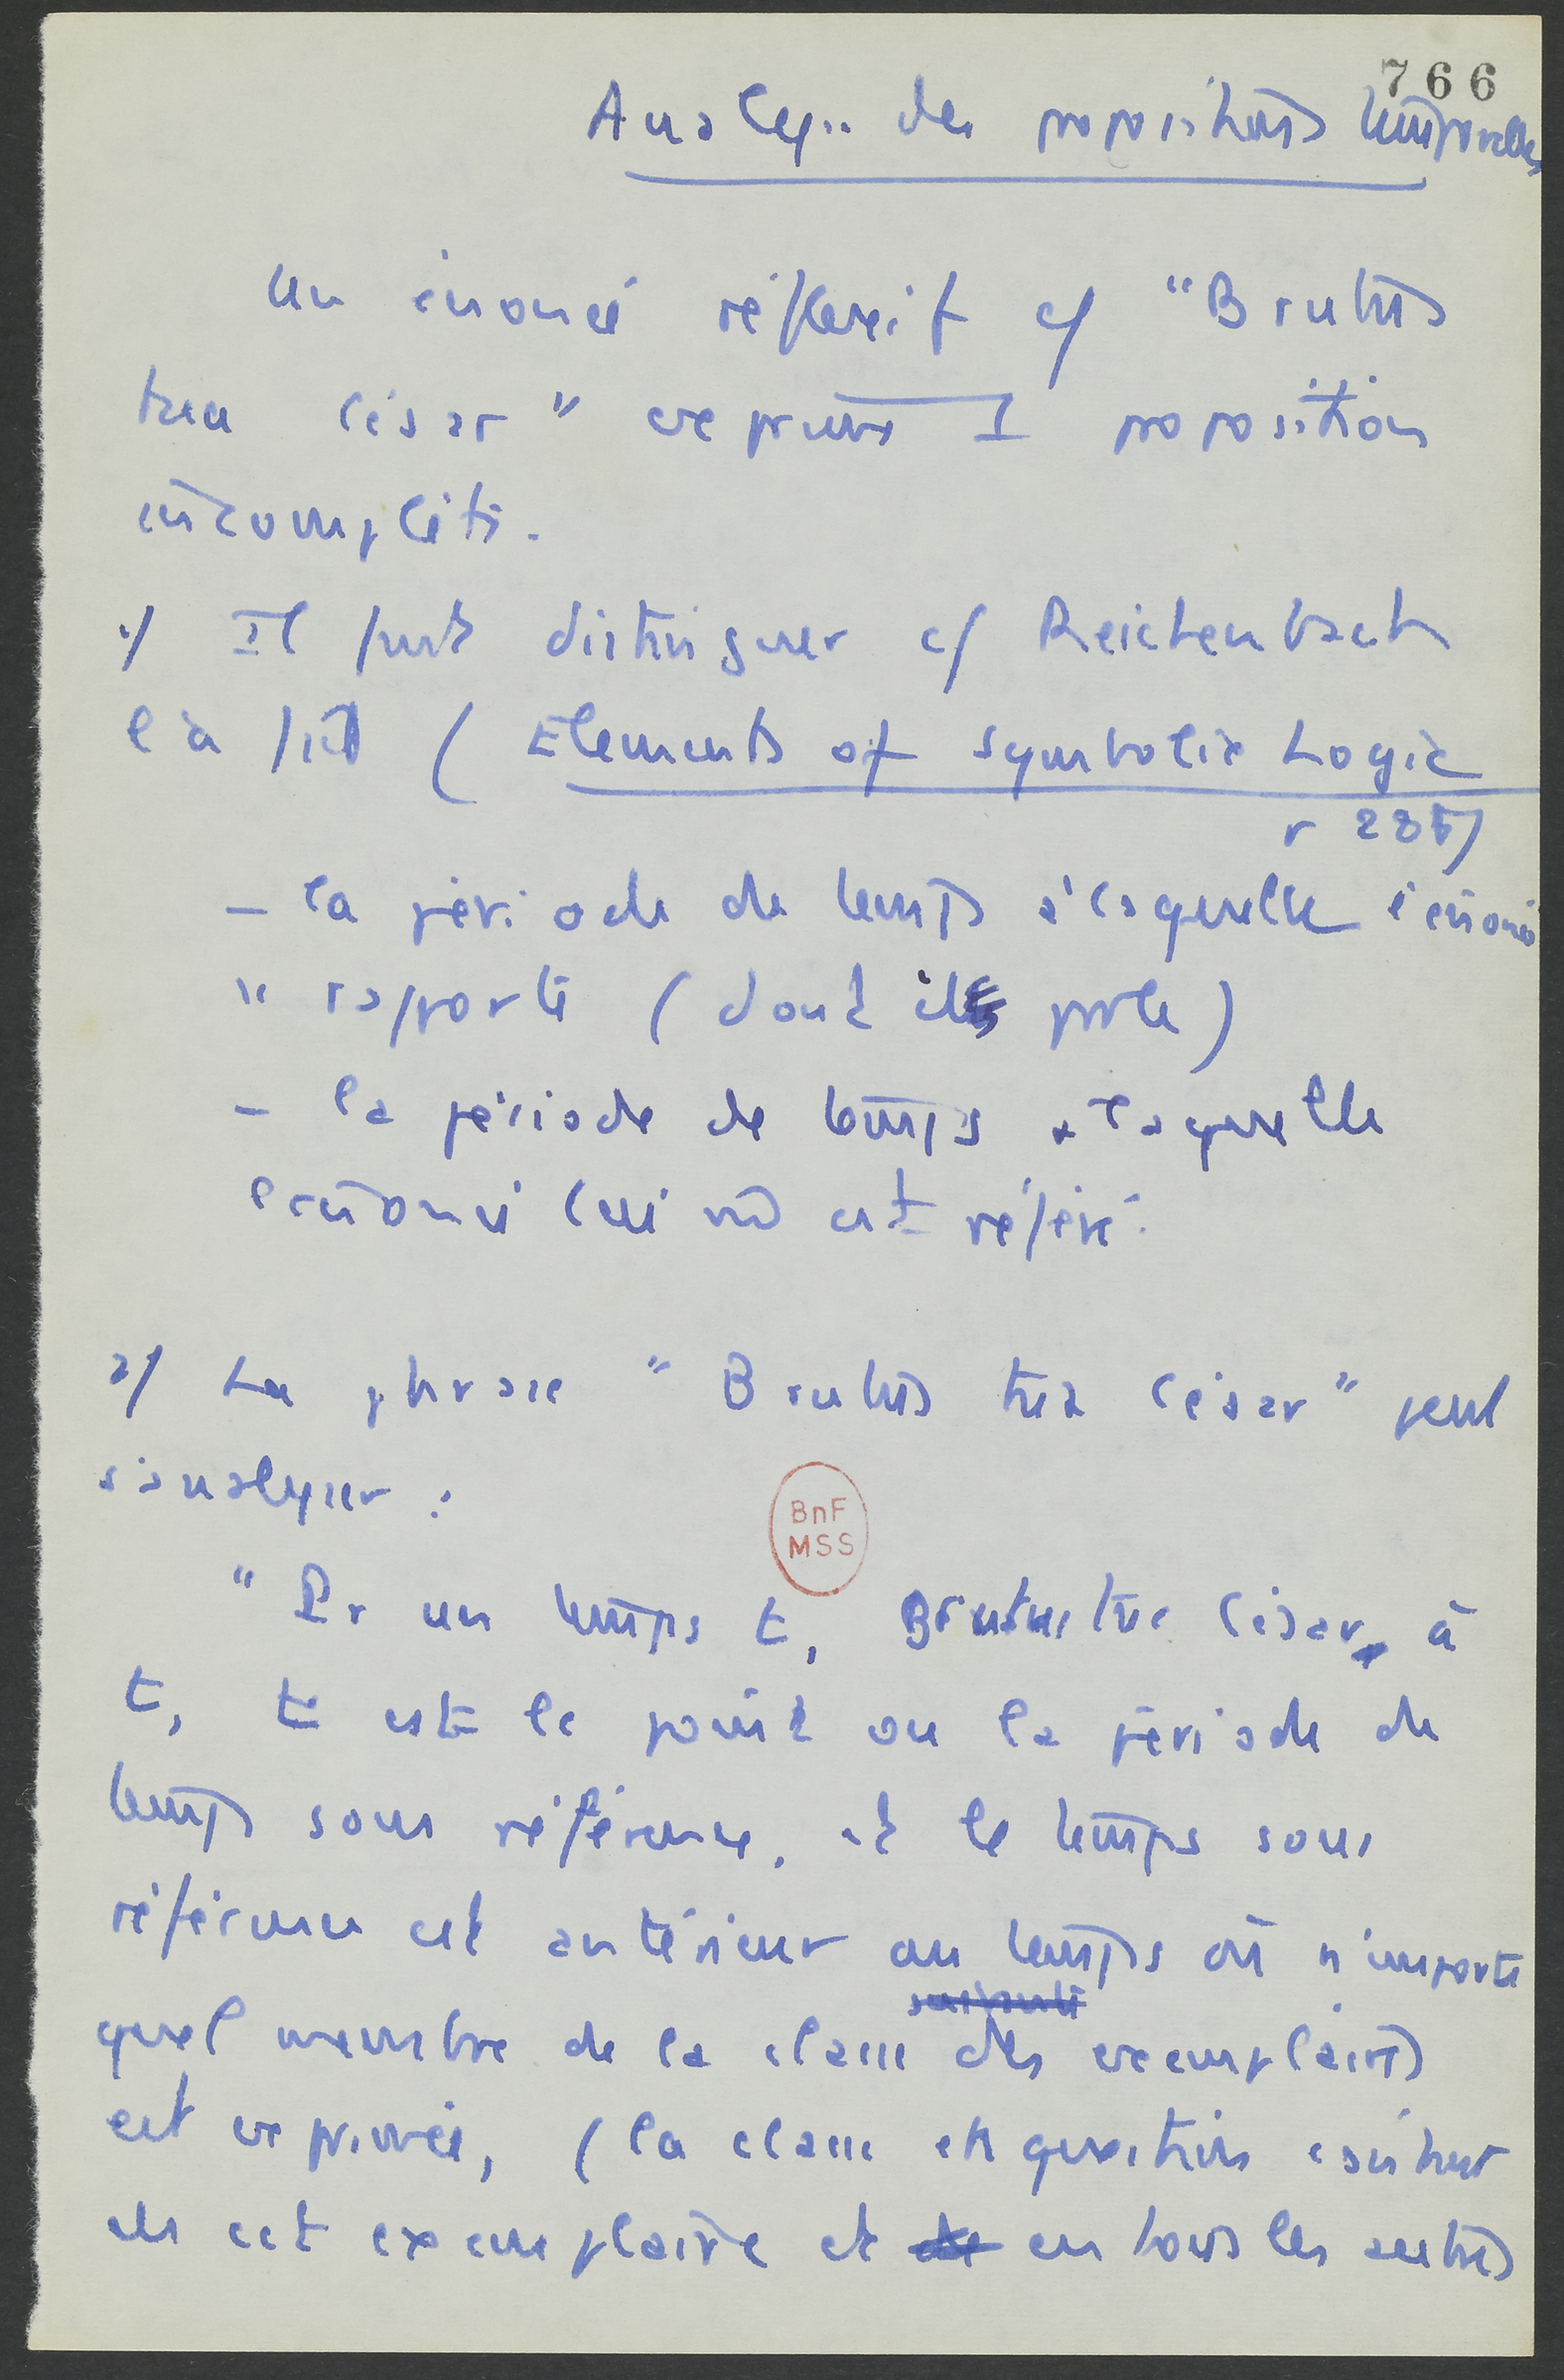 766
Analyse des propositions temporelles
Un énoncé réflexif c/ "Brutus
tua César" exprime 1 proposition
incomplète.
1/ Il faut distinguer c/ Reichenbach
l'a fait (Elements of symbolic Logic
p 285)
- la période de temps à laquelle l'énoncé
se rapporte (dont il parle)
- la période de temps à laquelle
l'énoncé lui même est référé.
2/ La phrase "Brutus tua César" peut
s'analyser :
"Pr un temps t, Brutus tue César à
t, t est le point ou la période de
temps sous référence, et le temps sous
référence est antérieur au temps où n'importe
quel membre de la classe des exemplaires
est exprimé, (la classe en question consistant
en cet exemplaire et en tous les autres
BnF
MSS